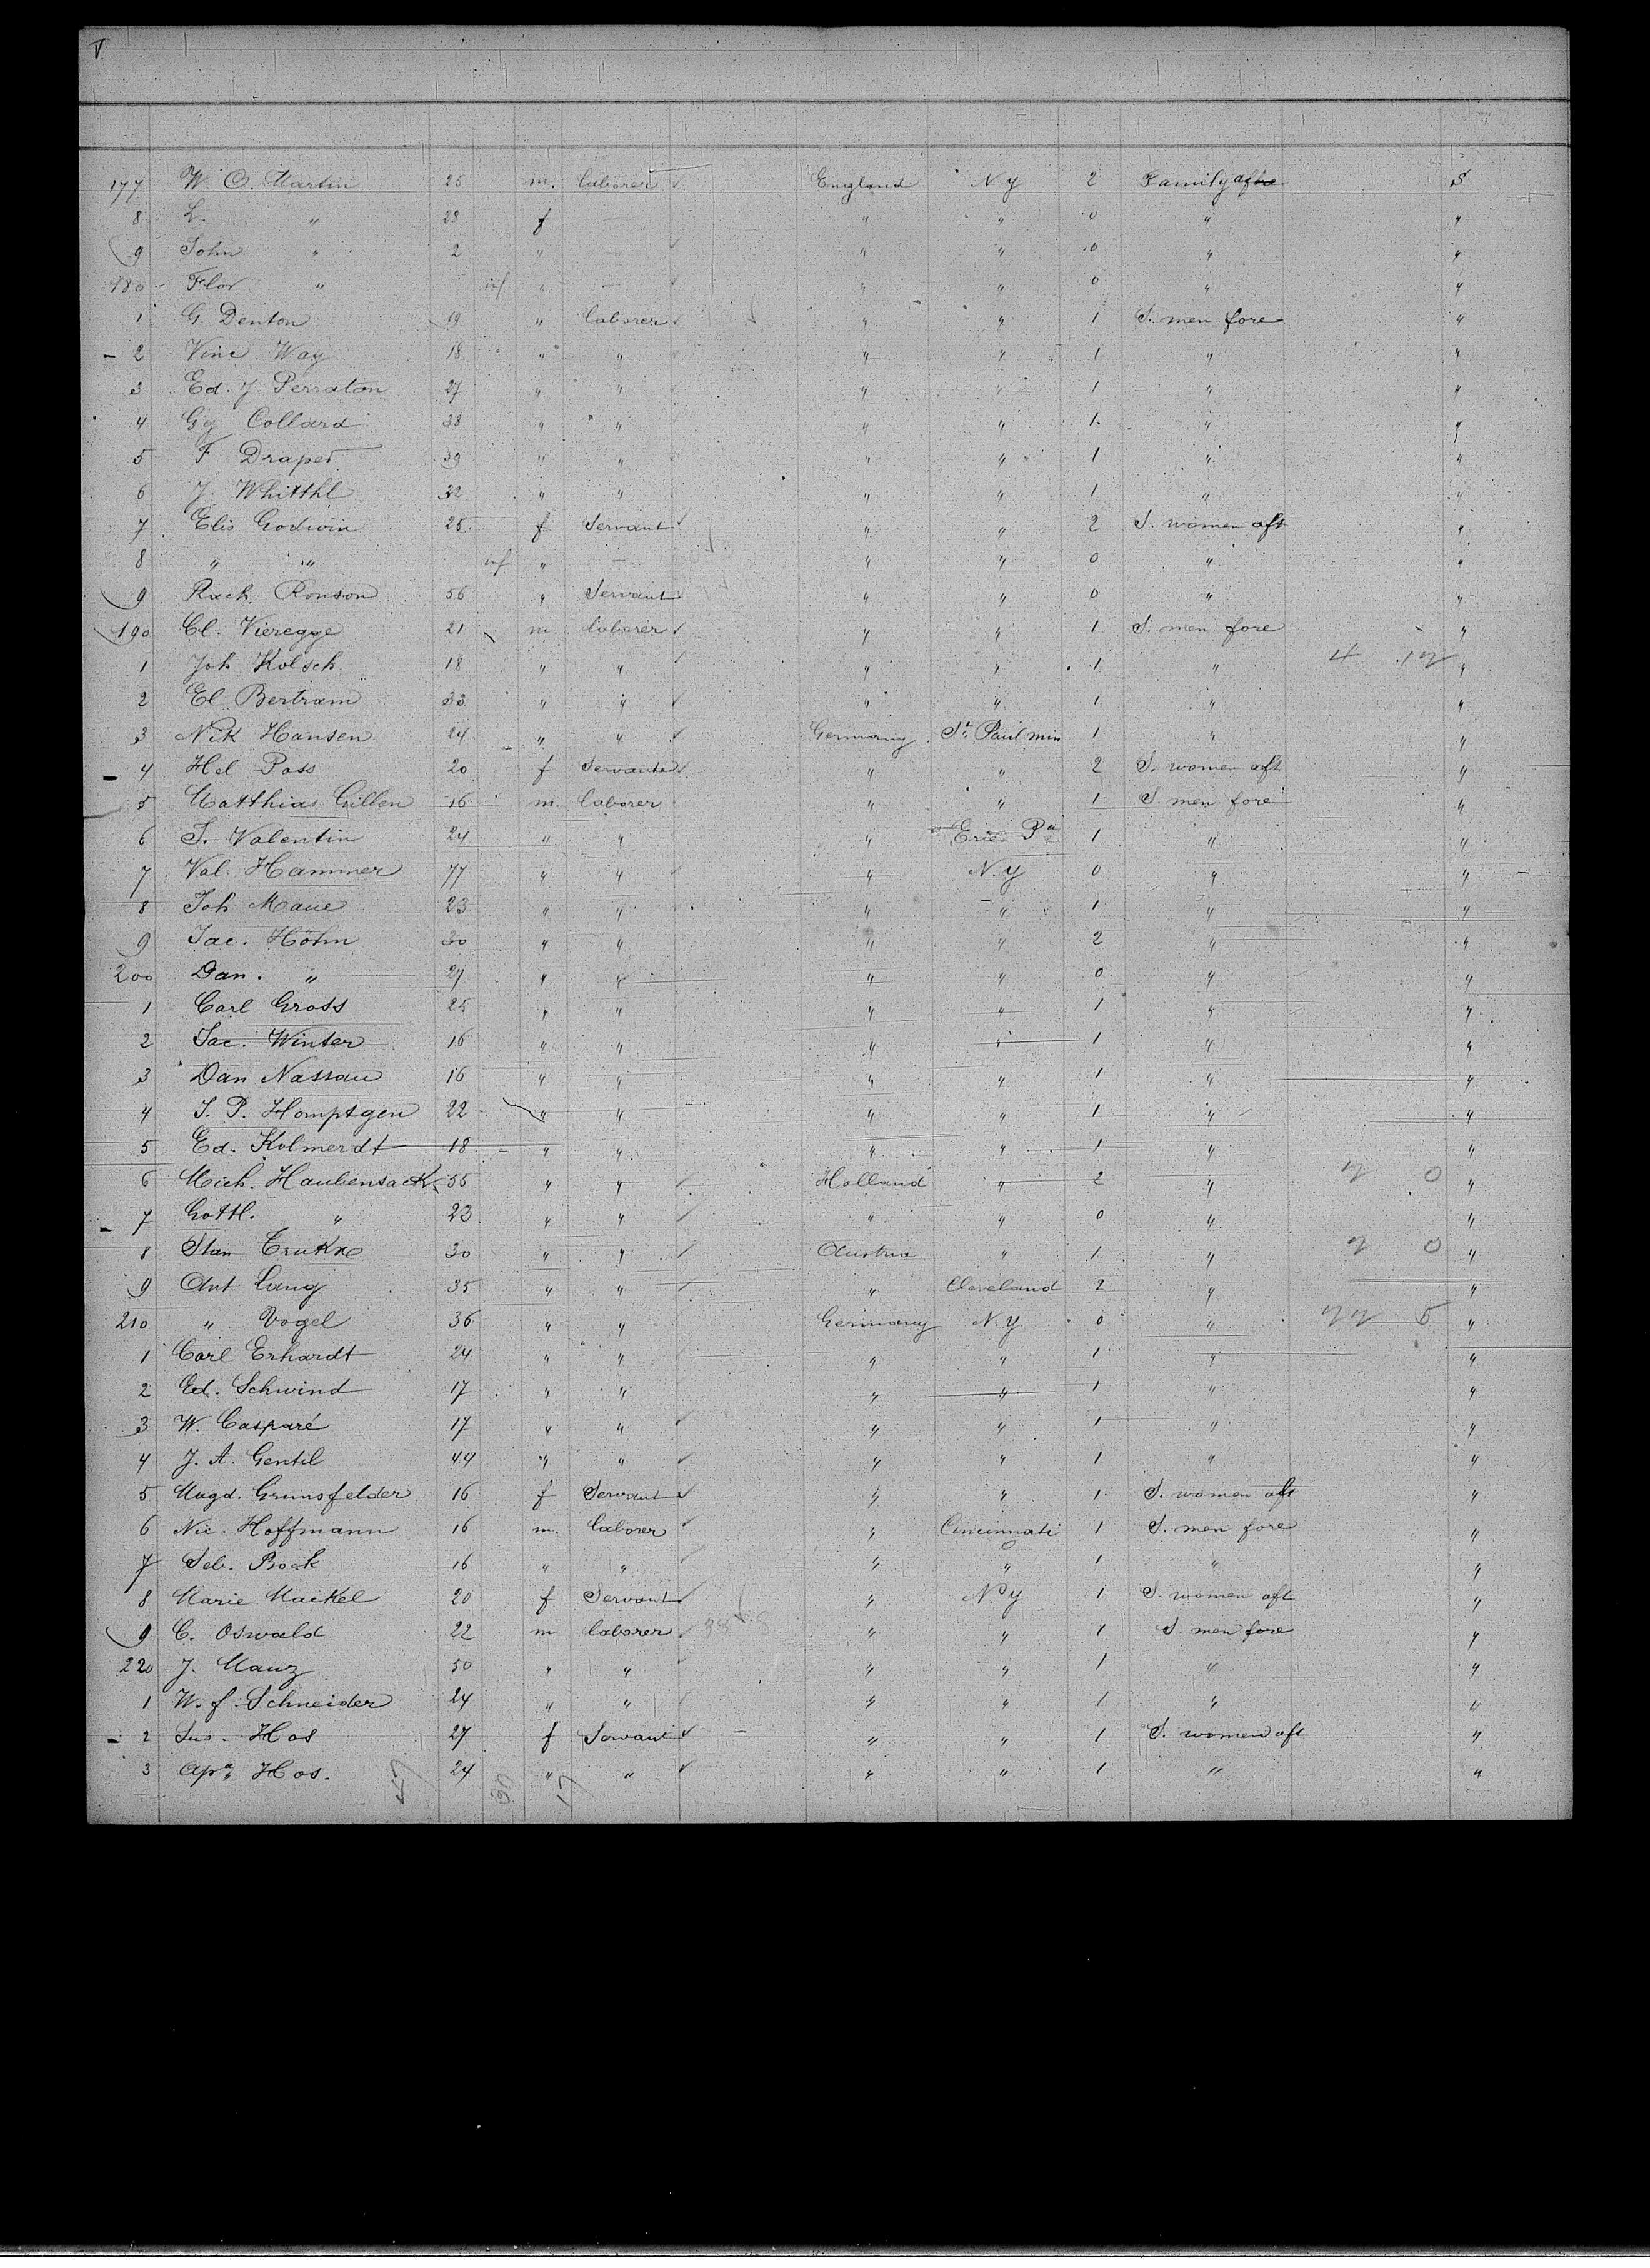 V.
177 W. O. Martin 25 m. laborer England N Y 2 Family aft S
8 L. " 28 f — " " 0 " "
9 John " 2 " — " " 0 " "
180 Flor " inf " — " " 0 " "
1 G Denton 19 " laborer " " 1 S. men fore "
2 Vinc. Way 18 " " " " 1 " "
3 Ed. J. Perraton 27 " " " " 1 " "
4 Gg Collard 38 " " " " 1 " "
5 F Draper 39 " " " " 1 " "
6 J. Whitthl 32 " " " " 1 " "
7 Elis Godwin 25 f Servant " " 2 S. women aft "
8 " " inf " — " " 0 " "
9 Rach. Ronson 56 " Servant " " 0 " "
190 Cl. Vieregge 21 m laborer " " 1 S. men fore "
1 Joh Kölsch 18 " " " " 1 " "
2 El Bertram 33 " " " " 1 " "
3 Nik Hansen 24 " " Germany St. Paul min 1 " "
4 Hel Pass 20 f Servant " " 2 S. women aft "
5 Matthias Gillen 16 m. laborer " " 1 S men fore "
6 J. Valentin 24 " " " Erie Pa 1 " "
7 Val. Hammer 77 " " " N. Y 0 " "
8 Joh Maue 23 " " " " 1 " "
9 Jac. Höhn 30 " " " " 2 " "
200 Dan. " 27 " " " " 0 " "
1 Carl Gross 25 " " " " 1 " "
2 Jac. Winter 16 " " " " 1 " "
3 Dan Nassau 16 " " " " 1 " "
4 J. P. Homptgen 22 " " " " 1 " "
5 Ed. Kolmerdt 18 " " " " 1 " "
6 Mich. Haubensack 55 " " Holland " 2 " "
7 Gottl. " 23 " " " " 0 " "
8 Stan 30 " " Austria " 1 " "
9 Ant Lang 35 " " " Cleveland 2 " "
210 " Vogel 36 " " Germany N. Y 0 " "
1 Carl Erhardt 24 " " " " 1 " "
2 Ed. Schwind 17 " " " " 1 " "
3 W. Casparé 17 " " " " 1 " "
4 J. A. Gentil 44 " " " " 1 " "
5 Magd. Grünsfelder 16 f Servant " " 1 S. women aft "
6 Nic. Hoffmann 16 m. laborer " Cincinnati 1 S. men fore "
7 Seb. Boak 16 " " " " 1 " "
8 Marie Mackel 20 f Servant " N. Y 1 S. women aft "
9 C. Oswald 22 m laborer " " 1 S. men fore "
220 J. Manz 50 " " " " 1 " "
1 W. f. Schneider 24 " " " " 1 " "
2 Sus. Hos 27 f Servant " " 1 S. women aft "
3 Apa. Hos. 24 " " " " 1 " "